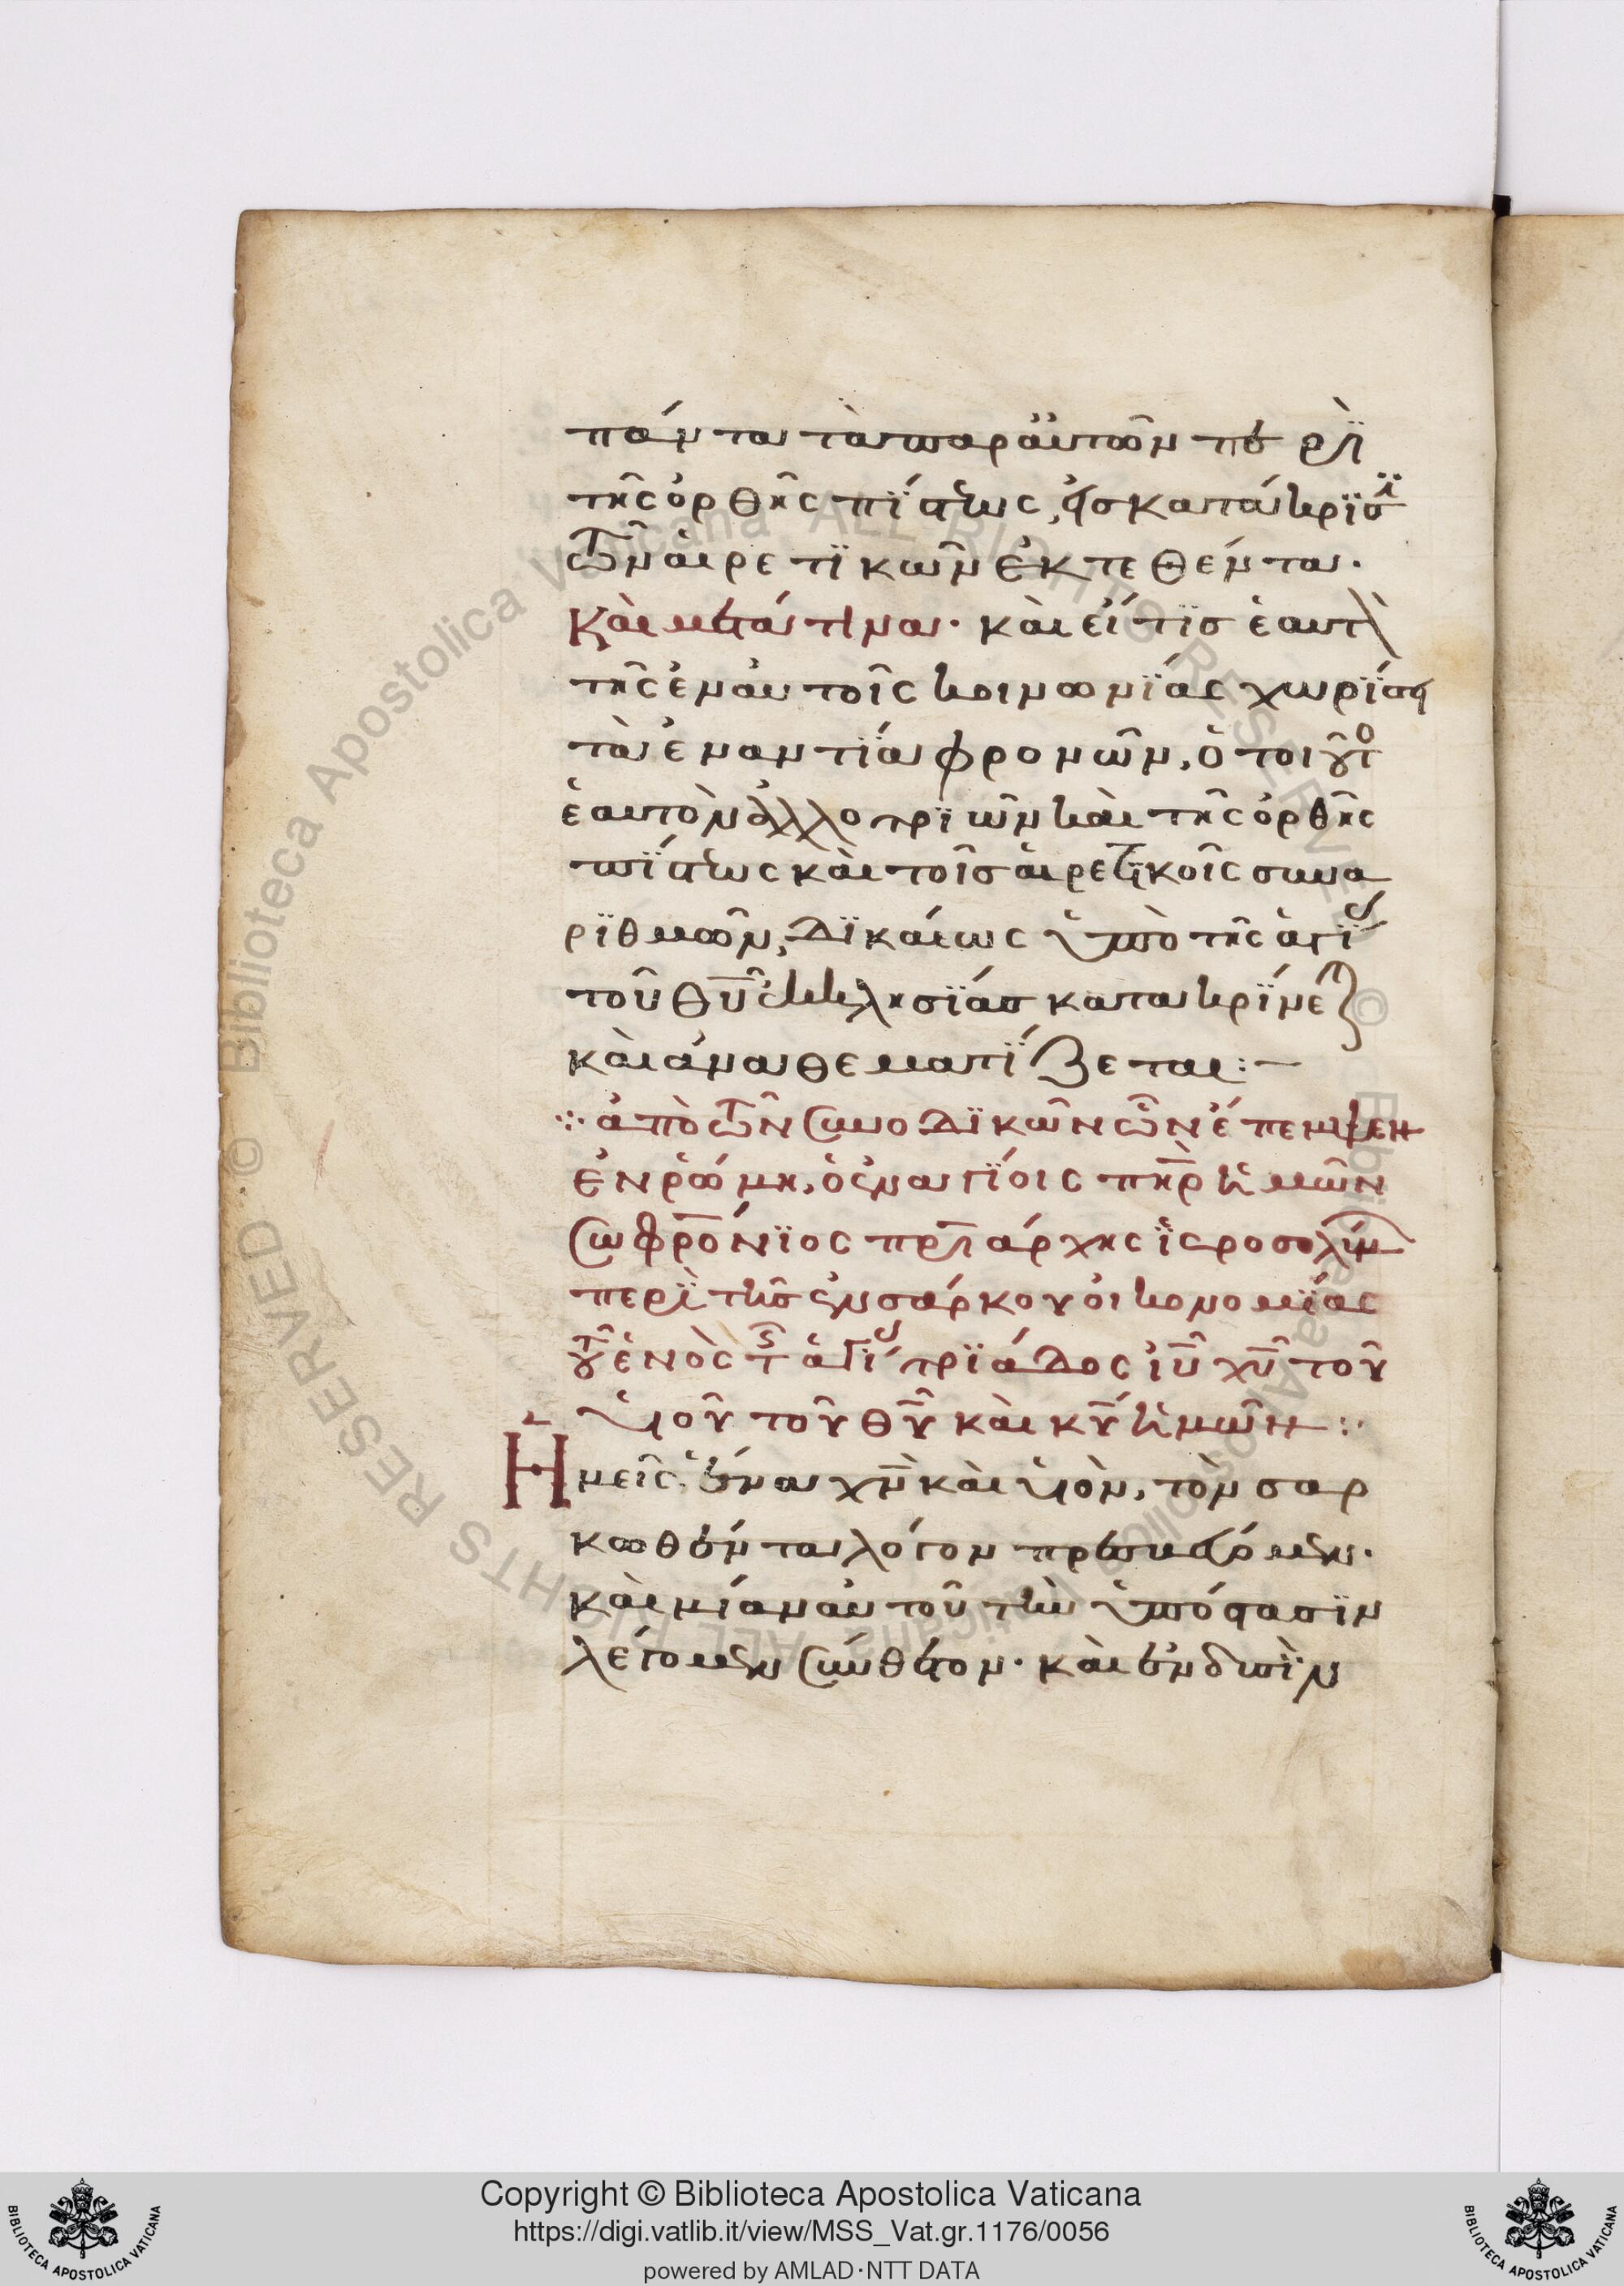 πάντα τὰ παρ' ἀυτῶν περὶ
τῆς ὀρθῆς πίστεως, εἰς κατάκρισϊ
τῶν ἁιρετικῶν ἐκτεθέντα.
Καὶ μετ' ἄτινα. καὶ εἴ τις ἑαυτὸν
τῆς ἐν ἀυτοῖς κοινωνίας χωρίσει
τὰ ἐναντία φρονῶν, ὁ τοιοῦτο
ἑαυτὸν ἀλλοτριῶν καὶ τῆς ὀρθῆς
πίστεως καὶ τοῖς ἁιρετικοῖς συνα
ριθμῶν, δικάιως ὑπὸ τῆς ἁγί
τοῦ θῦ ἐκκλησίας κατακρίνε
καὶ ἀναθεματίζεται:-
ἀπὸ τῶν Συνοδικῶν ὧν ἔπεμψεν
ἐν ῥώμη, ὁ ἐν ἁγίοις πὴρ ἡμῶν
Σωφρόνιος πρι άρχης ἱεροσολύμ
περὶ τῆς ἐνσάρκου οἰκονομίας
τοῦ ἑνὸς τ ἁγί τριάδος ἰῦ χῦ τοῦ
ὑιοῦ τοῦ θῦ καὶ κῦ ἡμῶν:
Ημεῖς, ἕνα χν καὶ ὑιὸν, τὸν σαρ
κωθέντα λόγον
καὶ μίαν ἀυτοῦ τὴν ὑπόστασιν
λέγομεν Σύνθετον. καὶ ἐν δυσὶν
Copyright © Biblioteca Apostolica Vaticana
https://digi.vatlib.it/view/MSS_Vat.gr.1176/0056
powered by AMLAD·NTT DATA
BIBLIOTECA APOSTOLICA VATICANA
BIBLIOTECA APOSTOLICA VATICANA